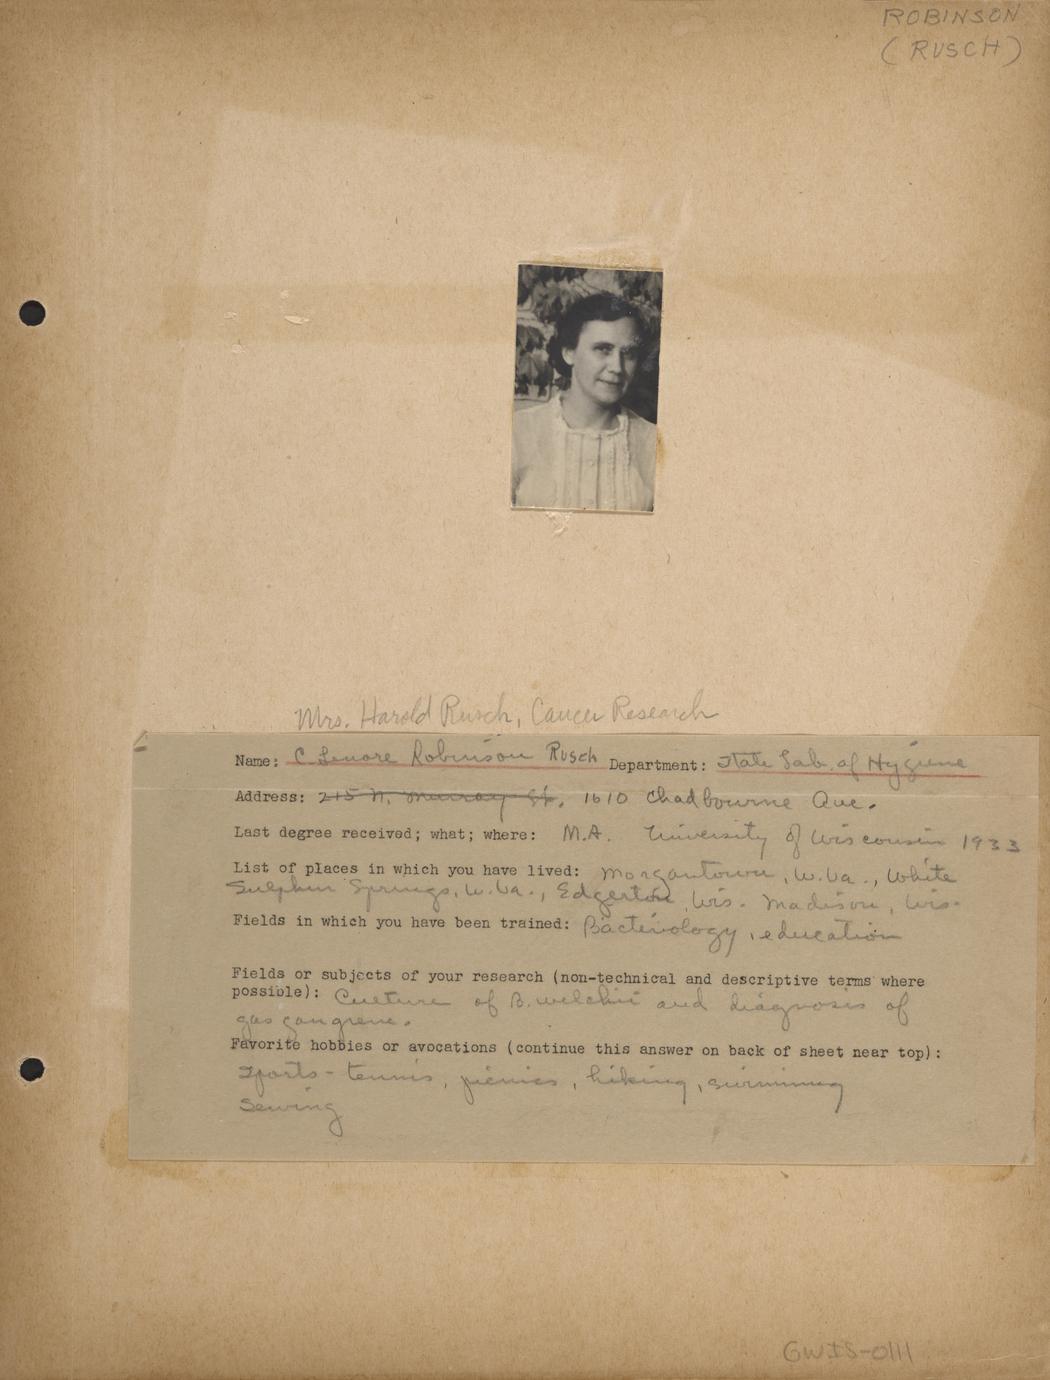 ROBINSON
(RUSCH)
Mrs. Harold Rusch, Cancer Research
Name: C. Lenore Robinson Rusch Department: State Lab. of Hygiene
Address: 215 N. Murray St. 1610 Chadbourne Ave.
Last degree received; what; where: M.A. University of Wisconsin 1933
List of places in which you have lived: Morgantown, W.Va., White
Sulphur Springs, W.Va., Edgerton, Wis. Madison, Wis.
Fields in which you have been trained: Bacteriology, education
Fields or subjects of your research (non-technical and descriptive terms where
possible): Culture of B. welchii and diagnosis of
gas gangrene.
Favorite hobbies or avocations (continue this answer on back of sheet near top):
Sports - tennis, picnics, hiking, swimming
Sewing
GWIS-0111